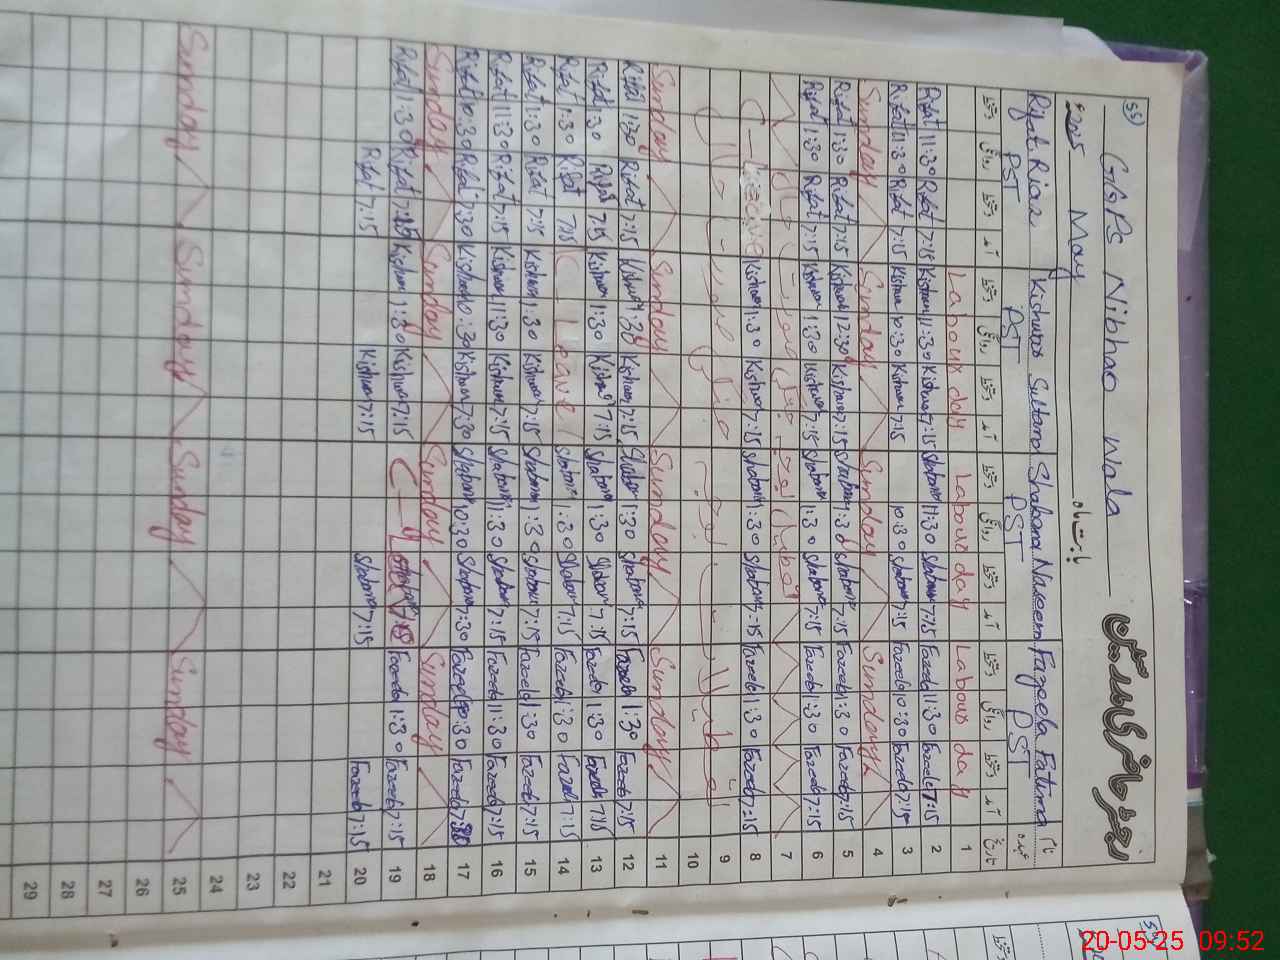 55
GGPS Nibhao Wala
2025 May
بابت ماہ
Rifat Riaz
Kishwar Sultana
Shabana Naseem
Fazeela Fatima
نام
PST
PST
PST
PST
عہدہ
دستخط روانگی دستخط آمد دستخط روانگی دستخط آمد دستخط روانگی دستخط آمد دستخط روانگی دستخط آمد تاریخ
Labour day Labour day Labour day 1
Rifat 11:30 Rifat 7:15 Kishwar 11:30 Kishwar 7:15 Shabana 11:30 Shabana 7:15 Fazeela 11:30 Fazeela 7:15 2
Rifat 11:30 Rifat 7:15 Kishwar 10:30 Kishwar 7:15 10:30 Shabana 7:15 Fazeela 10:30 Fazeela 7:15 3
Sunday Sunday Sunday Sunday 4
Rifat 1:30 Rifat 7:15 Kishwar 12:30 Kishwar 7:15 Shabana 1:30 Shabana 7:15 Fazeela 1:30 Fazeela 7:15 5
Rifat 1:30 Rifat 7:15 Kishwar 1:30 Kishwar 7:15 Shabana 1:30 Shabana 7:15 Fazeela 1:30 Fazeela 7:15 6
7
C-Leave Kishwar 1:30 Kishwar 7:15 Shabana 1:30 Shabana 7:15 Fazeela 1:30 Fazeela 7:15 8
9
10
Sunday Sunday Sunday Sunday 11
Rifat 1:30 Rifat 7:15 Kishwar 1:30 Kishwar 7:15 Shabana 1:30 Shabana 7:15 Fazeela 1:30 Fazeela 7:15 12
Rifat 1:30 Rifat 7:15 Kishwar 1:30 Kishwar 7:15 Shabana 1:30 Shabana 7:15 Fazeela 1:30 Fazeela 7:15 13
Rifat 1:30 Rifat 7:15 C Leave Shabana 1:30 Shabana 7:15 Fazeela 1:30 Fazeela 7:15 14
Rifat 1:30 Rifat 7:15 Kishwar 1:30 Kishwar 7:15 Shabana 1:30 Shabana 7:15 Fazeela 1:30 Fazeela 7:15 15
Rifat 11:30 Rifat 7:15 Kishwar 11:30 Kishwar 7:15 Shabana 11:30 Shabana 7:15 Fazeela 11:30 Fazeela 7:15 16
Rifat 10:30 Rifat 7:30 Kishwar 10:30 Kishwar 7:30 Shabana 10:30 Shabana 7:30 Fazeela 10:30 Fazeela 7:30 17
Sunday Sunday Sunday Sunday 18
Rifat 1:30 Rifat 7:15 Kishwar 1:30 Kishwar 7:15 Fazeela 1:30 Fazeela 7:15 19
Rifat 7:15 Kishwar 7:15 Shabana 7:15 Fazeela 7:15 20
21
22
23
24
Sunday Sunday Sunday Sunday 25
26
27
28
29
20-05-25 09:52